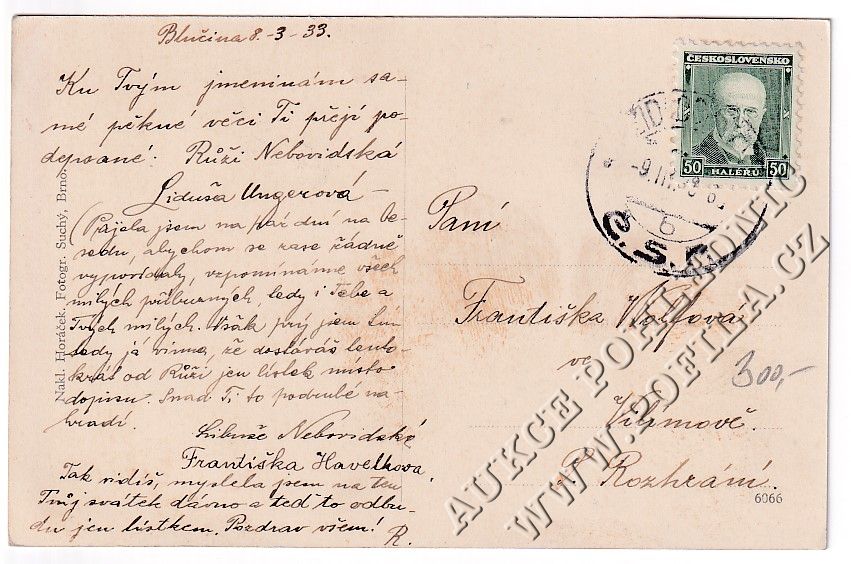 Blučina 8.-3-33.
Ku Tvým jmeninám sa-
mé pěkné věci Ti přejí po-
depsané: Růži Nebovidská
Liduša Ungerová –
Přijela jsem na pár dní na be-
sedu, abychom se zase řádně
vypovídaly, vzpomínáme všech
milých příbuzných, tedy i Tebe a
Tvých milých. Však prý jsem
tedy já vinna, že dostáváš tento-
krát od Růži jen lístek místo
dopisu. Snad Ti to podruhé na-
hradí.
Libuše Nebovidská
Františka Havelkova
Tak vidíš, myslela jsem na ten
Tvůj svátek dávno a teď to odbu-
du jen lístkem. Pozdrav všem!
R.
Nakl. Horáček, Fotogr. Suchý, Brno.
ČESKOSLOVENSKO
50 HALÉŘŮ 50
-9.III.33
6
Č.S.P.
Paní
Františka Wolfová
ve
Vilímově.
P. Rozhrání.
300,-
6066
AUKCE POHLEDNIC
WWW.POFILA.CZ